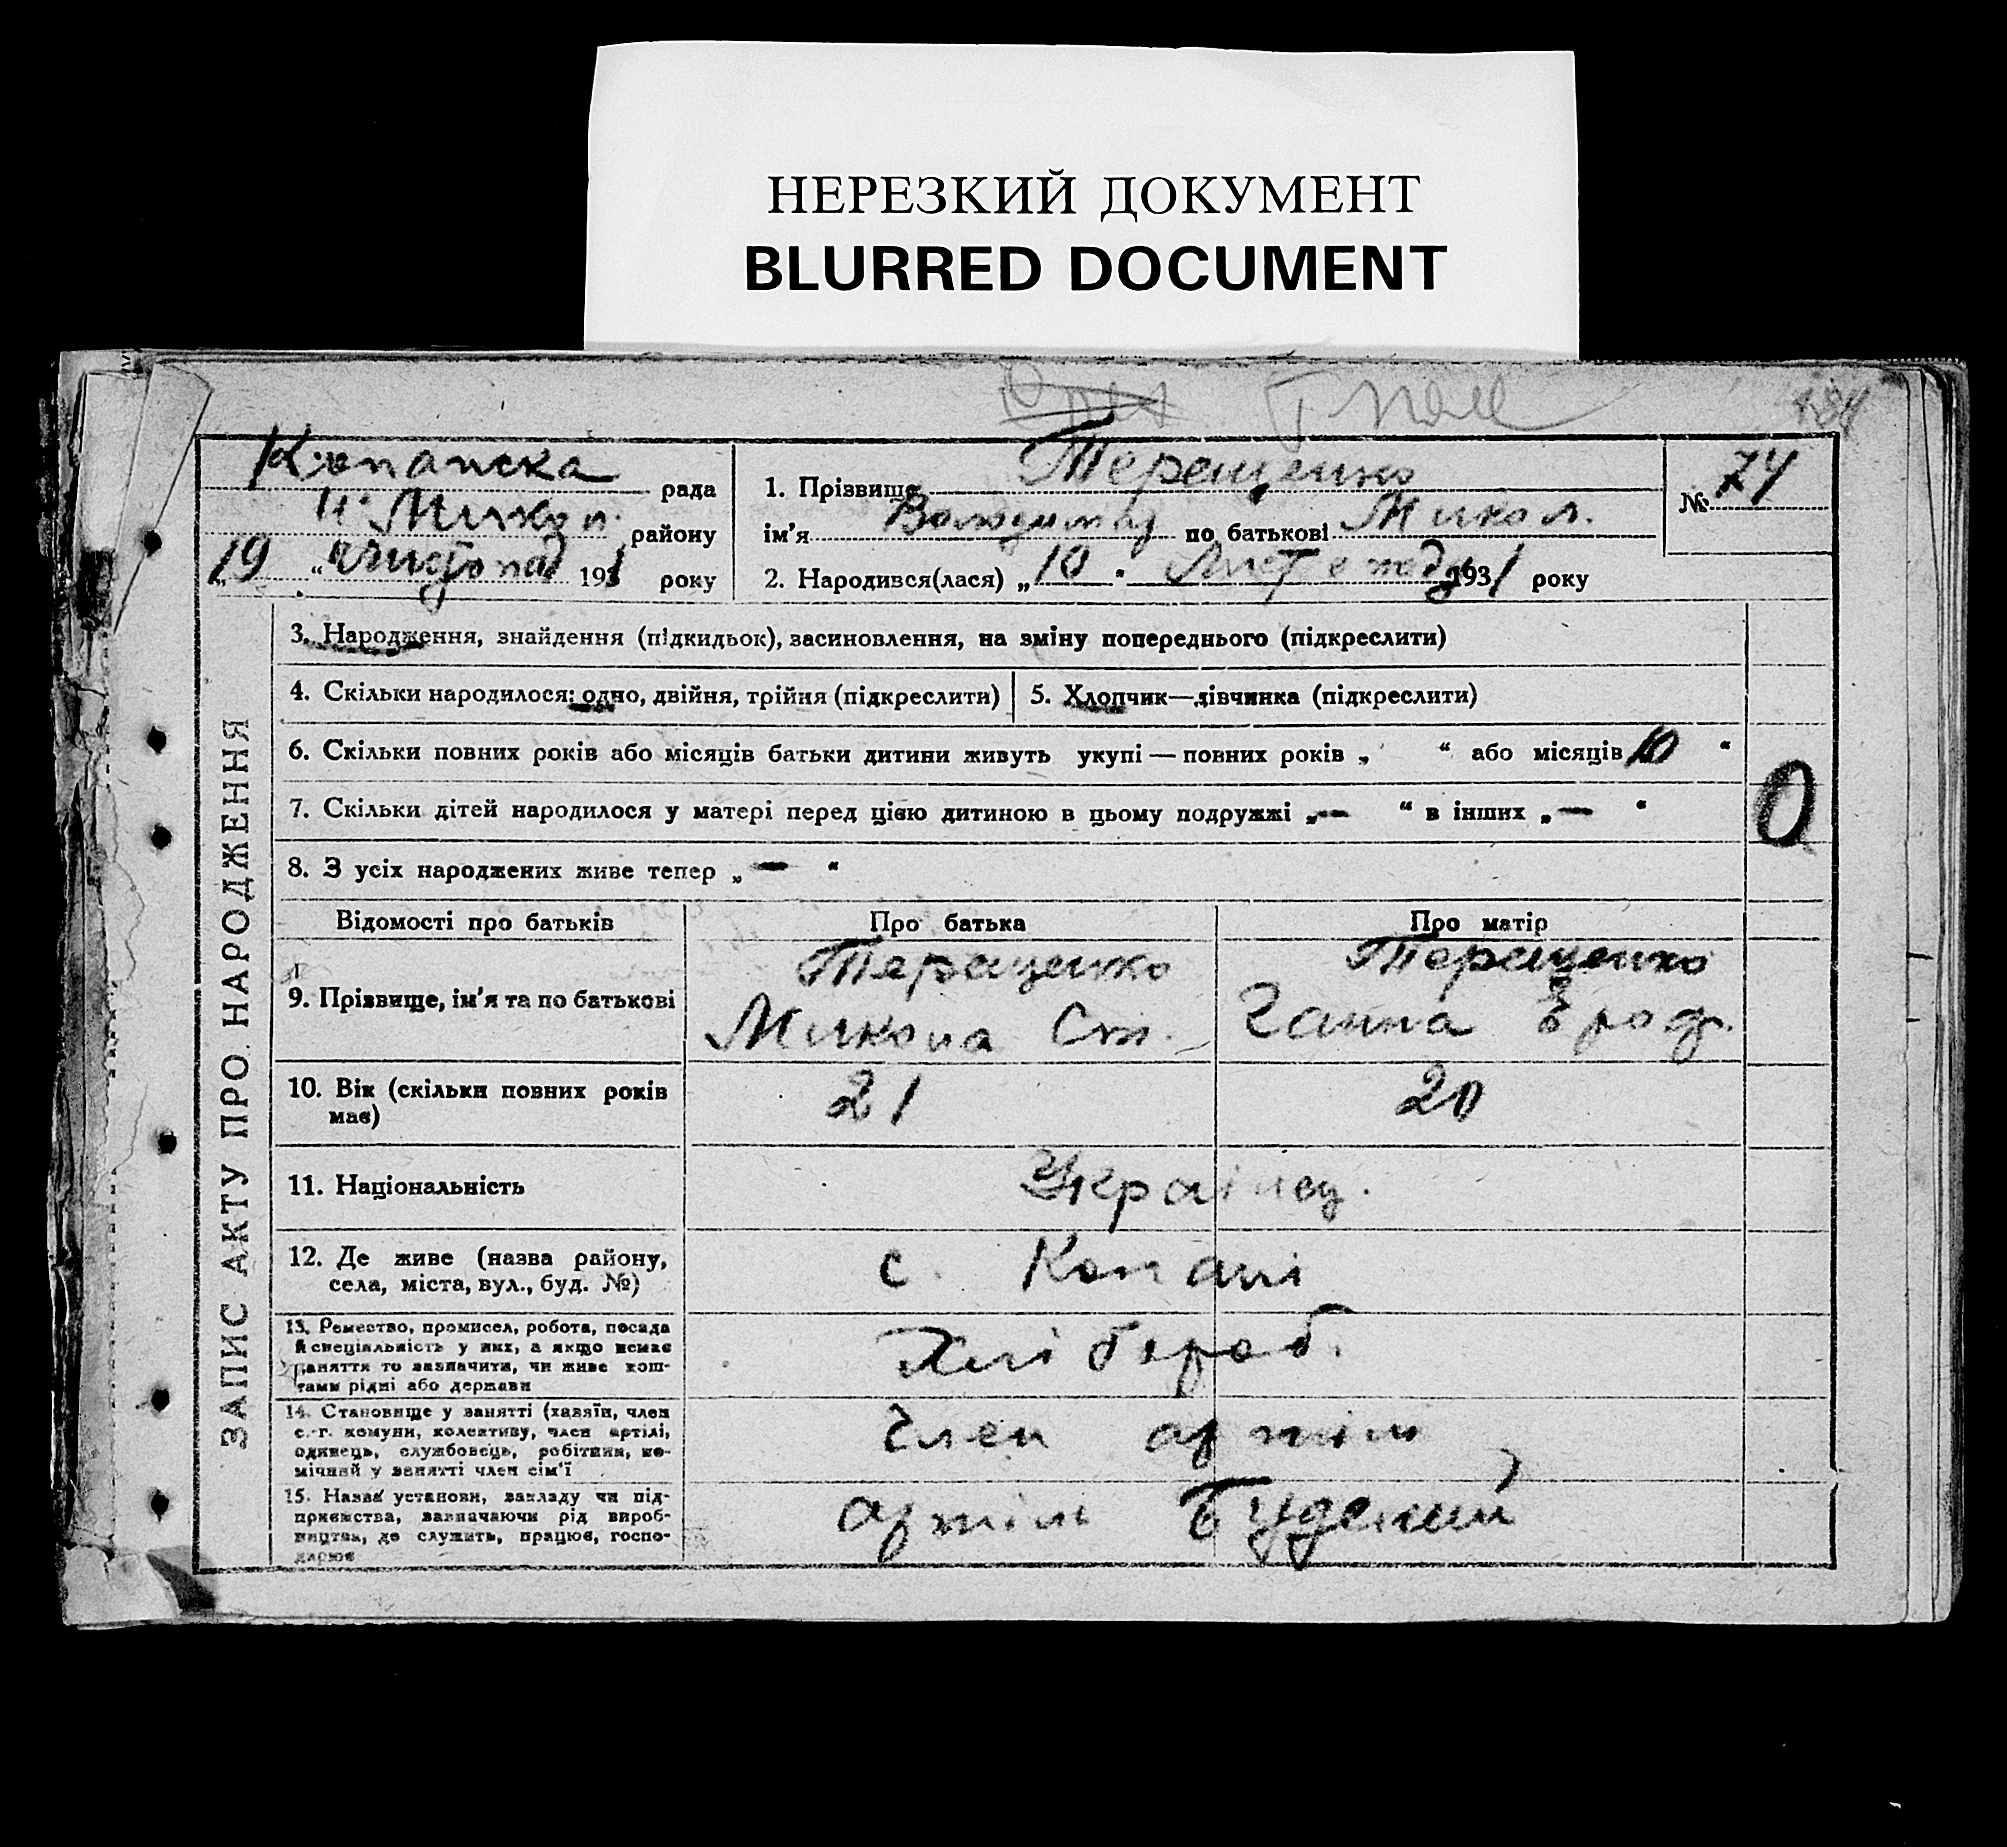 НЕРЕЗКИЙ ДОКУМЕНТ
BLURRED DOCUMENT
Копанска рада
Н. Микол. району
„19“ листопад 1931 року
1. Прізвище Терещенко
ім'я Володимир по батькові Микол.
2. Народився(лася) „10“ Листопада 1931 року
№ 74
ЗАПИС АКТУ ПРО НАРОДЖЕННЯ
3. Народження, знайдення (підкидьок), засиновлення, на зміну попереднього (підкреслити)
4. Скільки народилося: одно, двійня, трійня (підкреслити)
5. Хлопчик—дівчинка (підкреслити)
6. Скільки повних років або місяців батьки дитини живуть укупі — повних років „ “ або місяців 10 “
7. Скільки дітей народилося у матері перед цією дитиною в цьому подружжі „— “ в інших „— “
8. З усіх народжених живе тепер „— “
0
Відомості про батьків
Про батька
Про матір
9. Прізвище, ім'я та по батькові
Терещенко
Микола Ст.
Терещенко
Ганна Ерод.
10. Вік (скільки повних років має)
21
20
11. Національність
Українц.
12. Де живе (назва району,
села, міста, вул., буд. №)
с. Копані
13. Ремество, промисел, робота, посада
й спеціальність у них, а якщо немає
заняття то зазначити, чи живе кош-
тами рідні або держави
Хлібороб.
14. Становище у занятті (хазяїн, член
с.-г. комуни, колективу, член артілі,
одинець, службовець, робітник, по-
мічний у занятті член сім'ї
Член артіли
15. Назва установи, закладу чи під-
приємства, зазначаючи рід вироб-
ництва, де служить, працює, госпо-
дарює
артіли Буденний